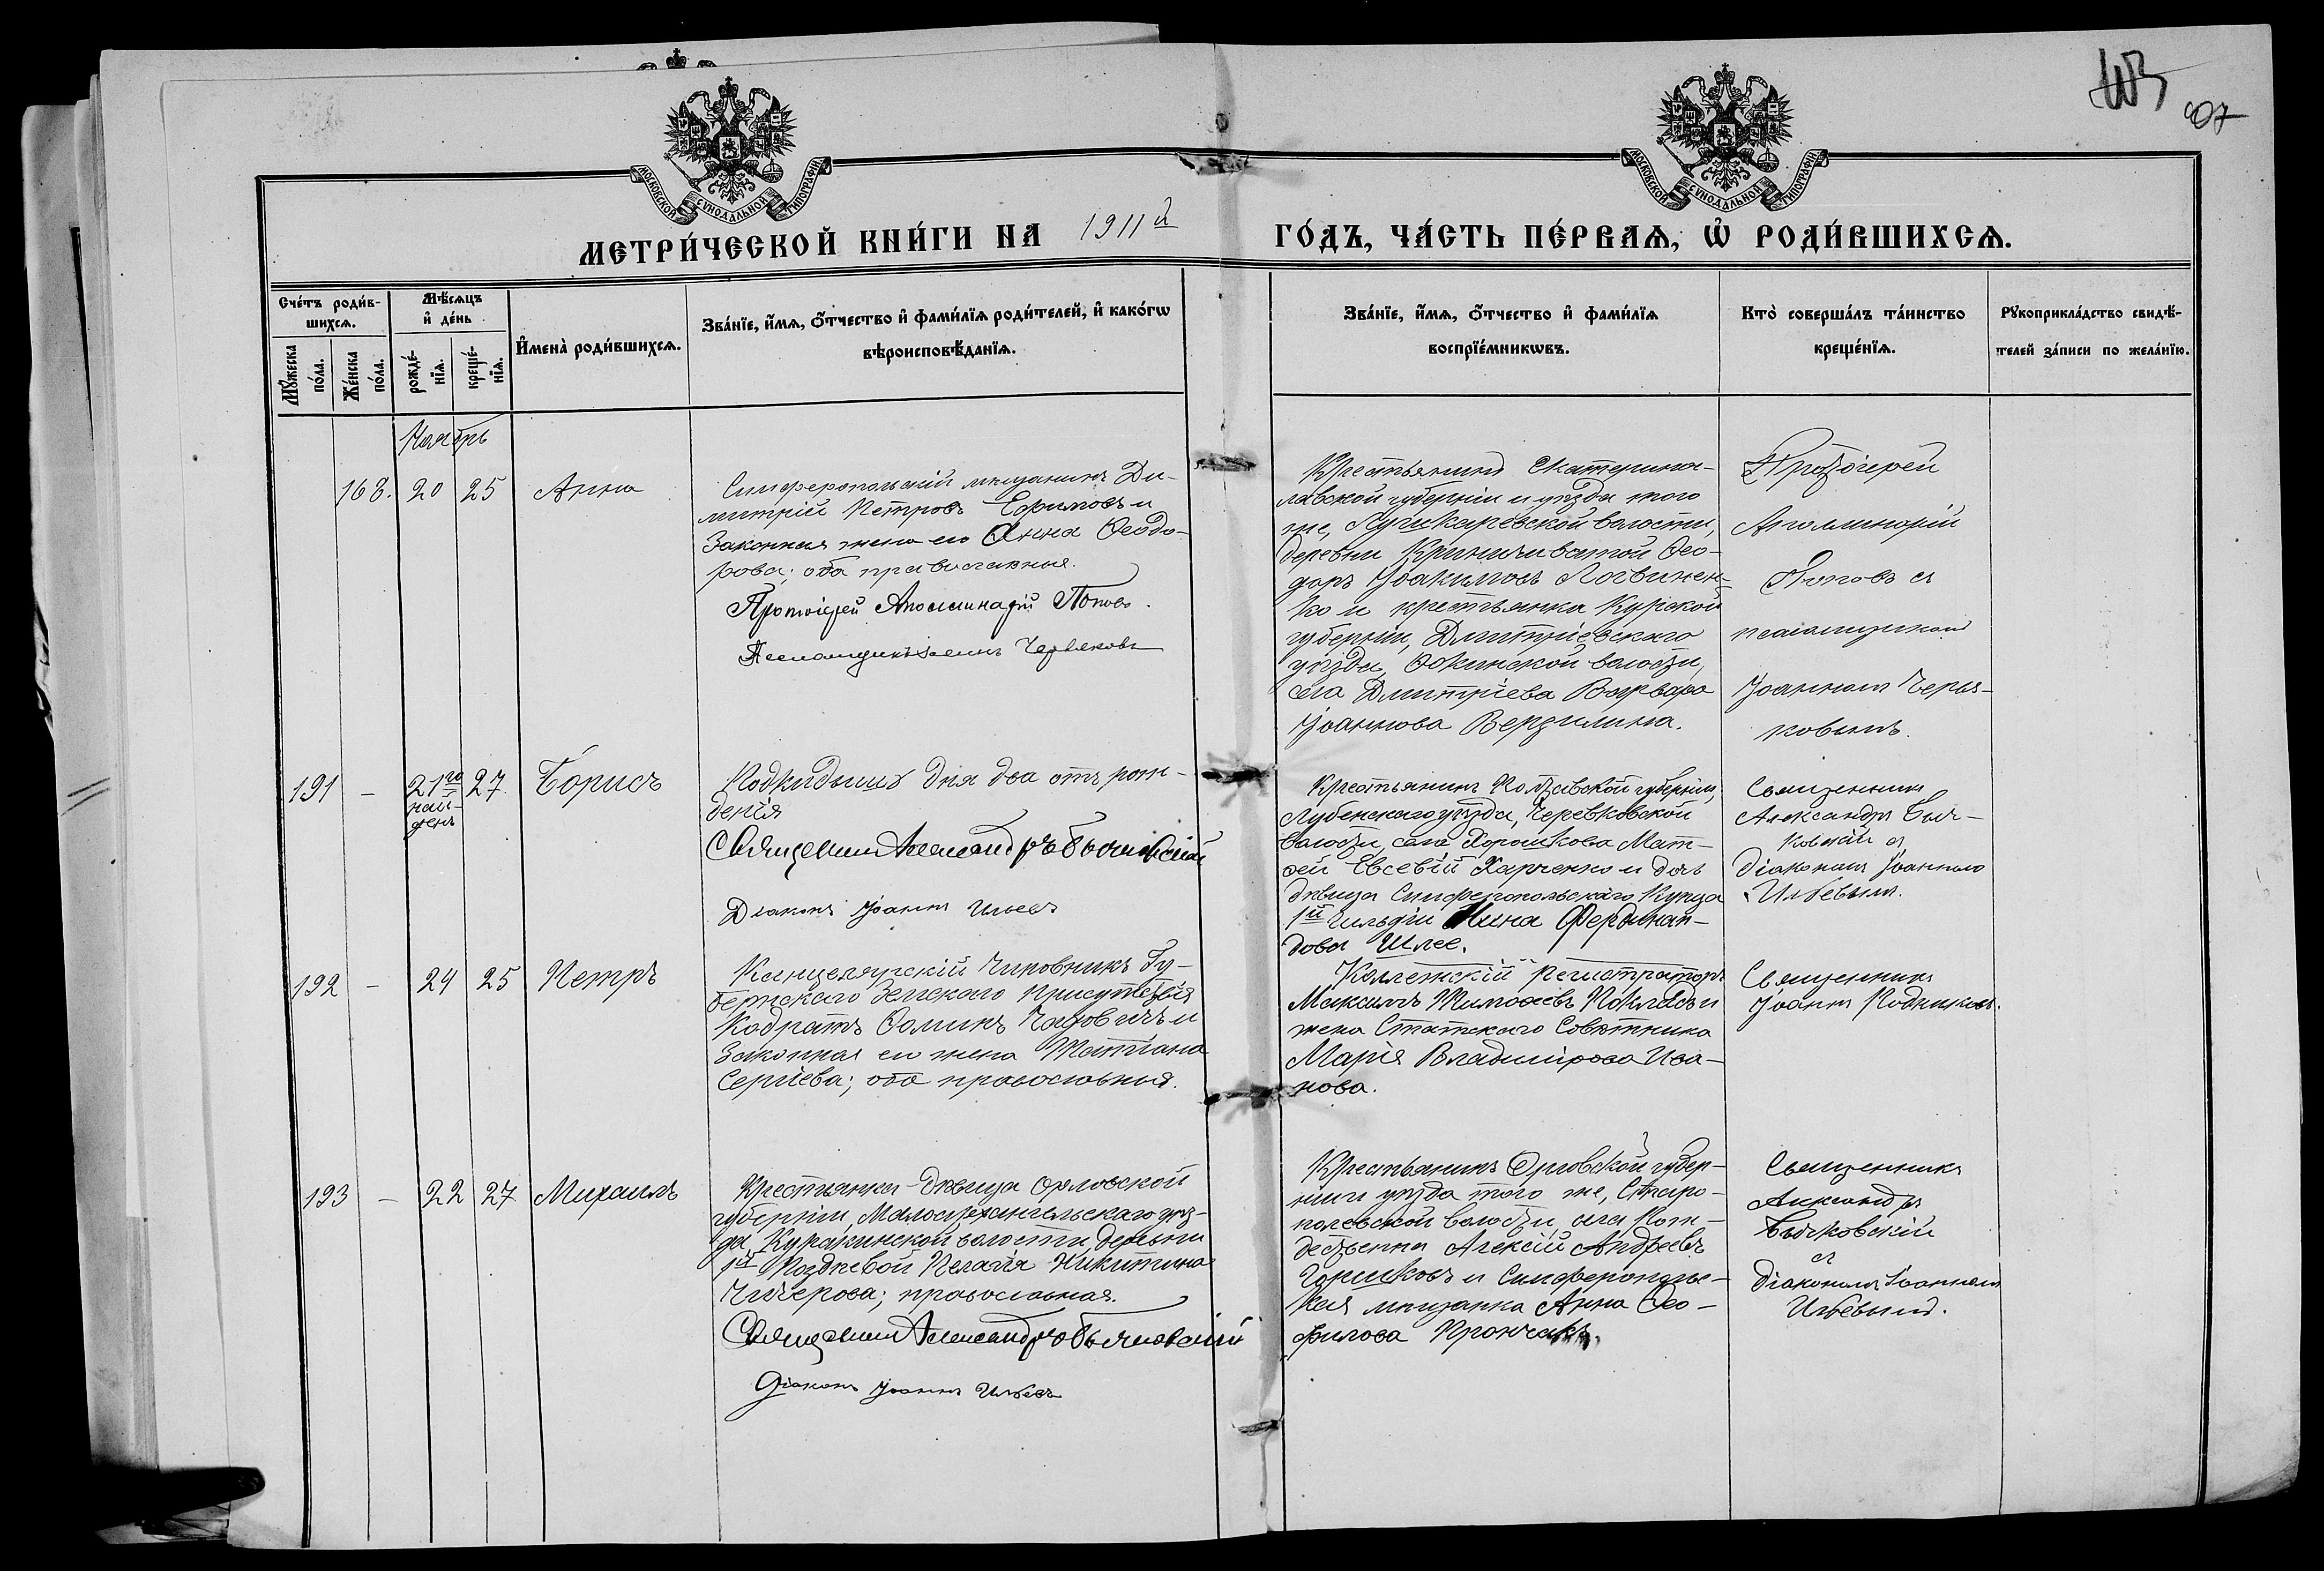 103
107
МОСКОВСКОЙ СѴНОДАЛЬНОЙ ТИПОГРАФІИ
МОСКОВСКОЙ СѴНОДАЛЬНОЙ ТИПОГРАФІИ
МЕТРИ́ЧЕСКОЙ КНИ́ГИ НА 1911й ГО́ДЪ, ЧА́СТЬ ПЕ́РВАѦ, Ѡ҆ РОДИ́ВШИХСѦ.
Сче́тъ роди́в-
шихсѧ.
Мꙋ́жеска
по́ла.
Же́нска
по́ла.
Мѣ́сѧцъ
и҆ де́нь
рожде́-
нїѧ.
креще́-
нїѧ.
И҆мена̀ роди́вшихсѧ.
Зва́нїе, и҆́мѧ, ѻ҆́тчество и҆ фами́лїѧ роди́телей, и҆ како́гѡ
вѣроисповѣ́данїѧ.
Зва́нїе, и҆́мѧ, ѻ҆́тчество и҆ фами́лїѧ
воспрїе́мникѡвъ.
Кто̀ соверша́лъ та́инство
креще́нїѧ.
Рꙋкоприкла́дство свидѣ́-
телей за́писи по жела́нїю.
Ноябрь
168. 20 25 Анна
Симферопольскій мѣщанинъ Ди-
митрій Петровъ Ефимовъ и
законная жена его Анна Ѳеодо-
рова; оба православные.
Протоіерей Аполлинарій Поповъ.
Псаломщикъ Іоаннъ Червяковъ
Крестьянинъ Екатерино-
лавской губерніи и уѣзда того
же, волости,
деревни Криничеватой Ѳео-
доръ Іоакимовъ Логвинен-
ко и крестьянка Курской
губерніи, Дмитріевскаго
уѣзда, волости,
села Дмитріева Варвара
Іоаннова Верзилина.
Протоіерей
Аполлинарій
Поповъ съ
псаломщикомъ
Іоанномъ Червя-
ковымъ.
191 – 21го 27. Борисъ
най-
денъ
Подкидышъ дня два отъ рож-
денія
Священникъ Александръ Бычковскій
Діаконъ Іоаннъ Ильевъ
Крестьянинъ Полтавской губерніи,
Лубенскаго уѣзда, Черевковской
волости, села Хорошкова Мат-
ѳей Евсевій Харченко и дочь
дѣвица Симферопольскаго купца
1й гильдіи Нина Фердинан-
дова Шлее.
Священникъ
Александръ Быч-
ковскій съ
діакономъ Іоанномъ
Ильевымъ.
192 – 24 25 Петръ
Канцелярскій чиновникъ Гу-
бернскаго Земскаго Присутствія
Кодратъ Ѳоминъ и
законная его жена Татіана
Сергіева; оба православные.
Коллежскій Регистраторъ
Максимъ Тимоѳеевъ и
жена Статскаго Совѣтника
Марія Владимірова Ива-
нова.
Священникъ
Іоаннъ
193 – 22 27 Михаилъ
Крестьянка-дѣвица Орловской
губерніи, Малоархангельскаго уѣз-
да Куракинской волости, деревни
1й Поздневой Пелагія Никитина
Чичерова; православная.
Священникъ Александръ Бычковскій
Діаконъ Іоаннъ Ильевъ
Крестьянинъ Орловской губер-
ніи и уѣзда того же,
волости, села Рож-
дествена Алексій Андреевъ
Горшковъ и Симферопольс-
кая мѣщанка Анна Ѳео-
филова
Священникъ
Александръ
Бычковскій
съ
діакономъ Іоанномъ
Ильевымъ.